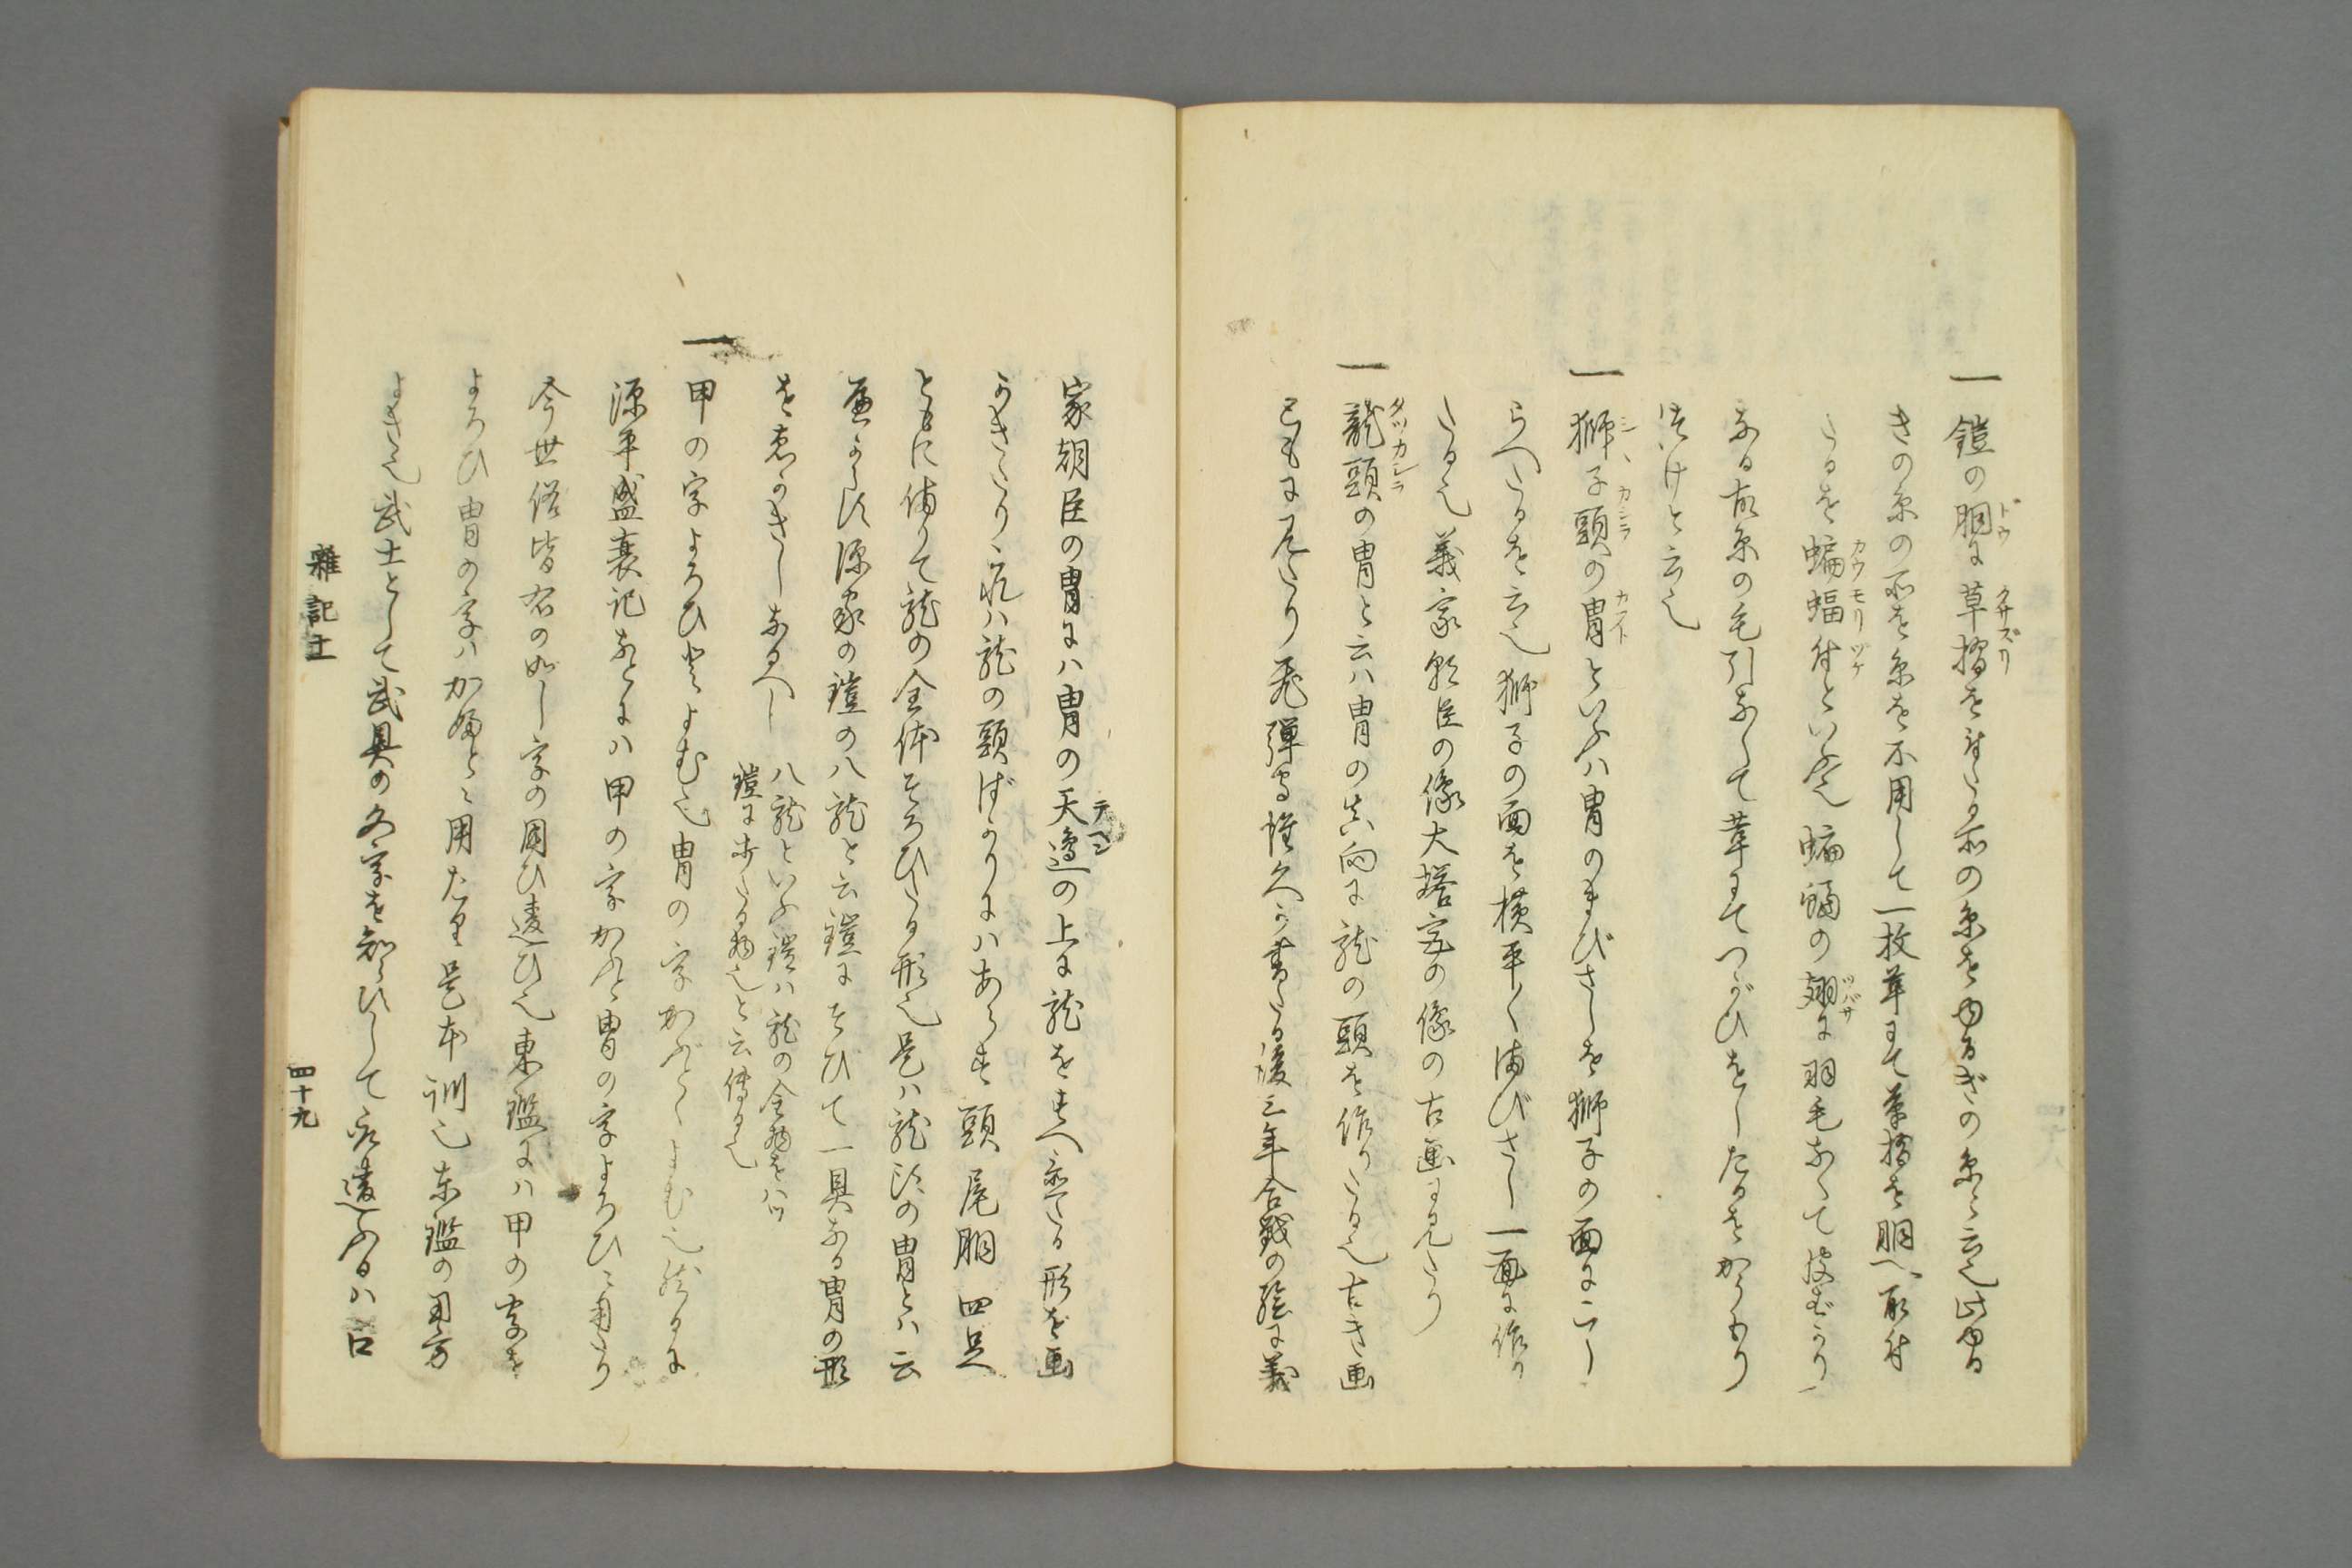 一 鎧の胴に草摺を付たる所の糸をゆるぎの糸と云也此ゆる
ドウ クサズリ
きの糸の所を糸を不用して一枚革にて草摺を胴へ取付
たるを蝙蝠付といふ也蝙蝠の翅に羽毛なくて皮ばかり
カウモリヅケ ツバサ
なる故糸の毛引なくて革にてつがひをしたるをかうもり
つけと云也
一 獅子頭の冑といふハ冑のまびさしを獅子の面にこし
シヽ カシラ カブト
らへたるを云也獅子の面を横平くまびさし一面に作り
たる也義家朝臣の像大塔宮の像の古画に見たり
一 龍頭の冑と云ハ冑の真向に龍の頭を作りたる也古き画
タツカシラ
にもに見たり飛弾守惟久が書たる後三年合戦の絵に義
家朝臣の冑にハ冑の天邊の上に龍をすへ置たる形を画
テヘン
かきたり是ハ龍の頭ばかりにハあらす頭尾胴四足
ともに備りて龍の全体そろひたる形也是ハ龍頭の冑とハ云
へからす源家の鎧の八龍と云鎧にそひて一具なる冑の形
をゑかきしなるへし
八龍といふ鎧ハ龍の金物を八ツ
鎧に打たる物也と云傳る也
一 甲の字よろひとよむ也冑の字かぶとゝよむ也然るに
源平盛衰記なとにハ甲の字かぶと冑の字よろひに用たり
今世俗皆右の如し字の用ひ違ひ也東鑑にハ甲の字を
よろひ冑の字ハかぶとゝ用たり是本訓也東鑑の用方
よき也武士として武具の文字を知らすして取違ふるハ口
雜記十
四十九